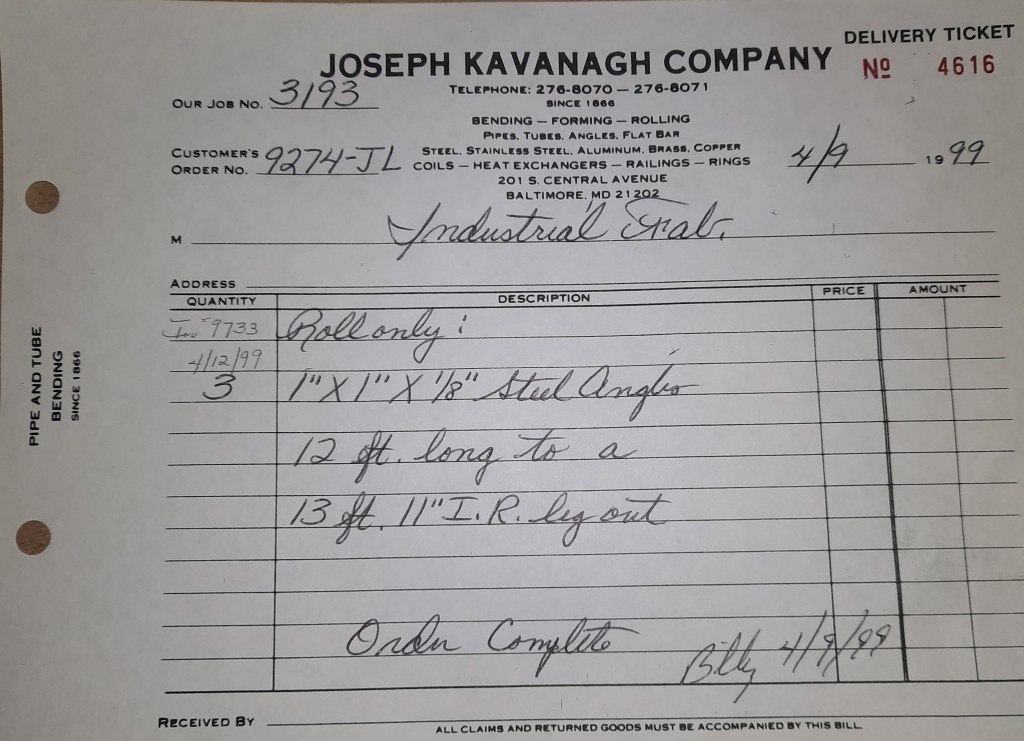 DELIVERY TICKET
JOSEPH KAVANAGH COMPANY
Nº 4616
TELEPHONE: 276-8070 — 276-8071
OUR JOB NO. 3193
SINCE 1866
BENDING — FORMING — ROLLING
PIPES, TUBES, ANGLES, FLAT BAR
CUSTOMER'S ORDER NO. 9274-JL
STEEL, STAINLESS STEEL, ALUMINUM, BRASS, COPPER
COILS — HEAT EXCHANGERS — RAILINGS — RINGS
4/9 1999
201 S. CENTRAL AVENUE
BALTIMORE, MD 21202
M Industrial Fab.
ADDRESS
QUANTITY DESCRIPTION PRICE AMOUNT
Inv # 9733 Roll only:
4/12/99
3 1" X 1" X 1/8" Steel Angles
12 ft. long to a
13 ft. 11" I.R. leg out
Order Complete
Billy 4/9/99
RECEIVED BY
ALL CLAIMS AND RETURNED GOODS MUST BE ACCOMPANIED BY THIS BILL
PIPE AND TUBE
BENDING
SINCE 1866